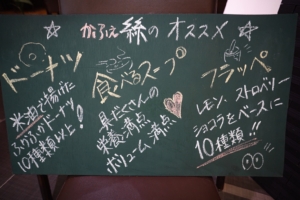 ☆かふぇ 絲のオススメ☆
ドーナツ
米油で揚げた
ふわふわドーナツ
10種類以上!
食べるスープ
具だくさんの
栄養満点
ボリューム満点
フラッペ
レモン、ストロベリー
ショコラをベースに
10種類!!